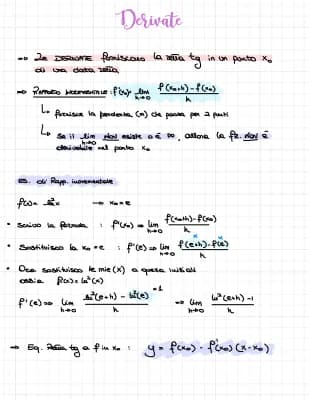 Derivate
→ Le DERIVATE forniscono la retta tg in un punto x₀
di una data retta
→ RAPPORTO INCREMENTALE: f'(x)= lim h→0 f(x₀+h)-f(x₀) / h
↳ fornisce la pendenza (m) che passa per 2 punti
↳ Se il lim h→0 NON esiste o è ∞, allora la fz. NON è
derivabile nel punto x₀
es. di Rapp. incrementale
f(x)= ln²x → x₀=e
• Scrivo la formula : f'(x₀)= lim h→0 f(x₀+h)-f(x₀) / h
• Sostituisco la x₀=e : f'(e)= lim h→0 f(e+h)-f(e) / h
• Ora sostituisco le mie (x) a quella iniziali
ossia f(x)= ln²(x)
f'(e)= lim h→0 ln²(e+h) - ln²(e) / h =1 ⇒ lim h→0 ln²(e+h)-1 / h
→ Eq. retta tg a f in x₀ : y = f(x₀) - f'(x₀) (x-x₀)